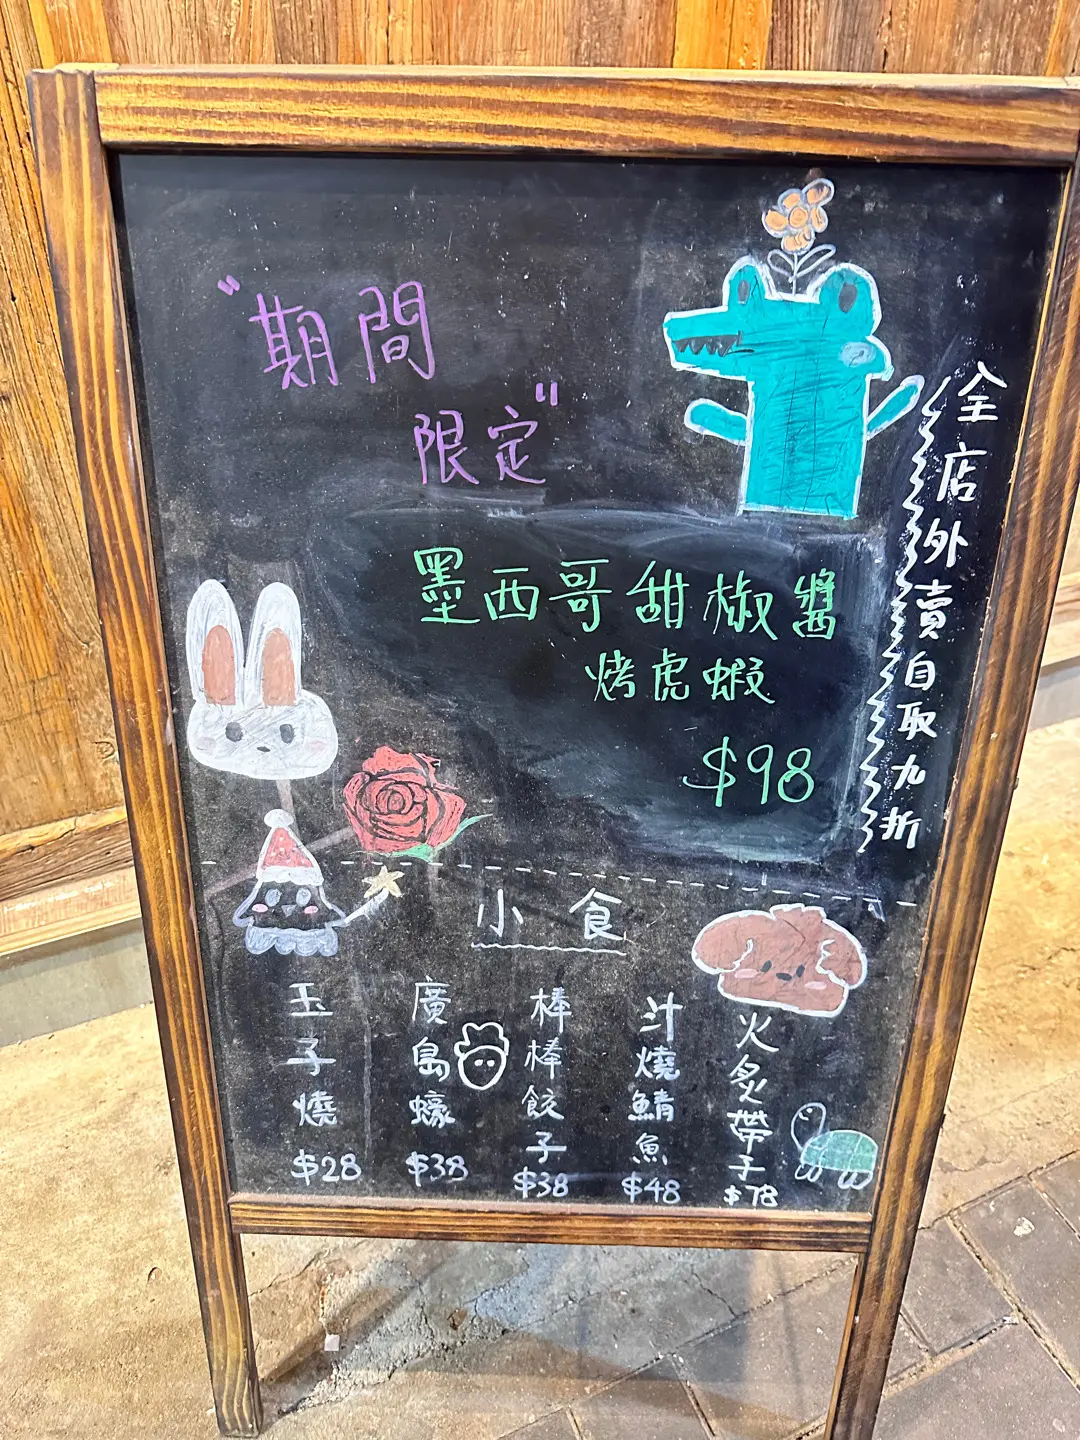 "期間
限定"
墨西哥甜椒醬
烤虎蝦
$98
全店外賣自取九折
小食
玉子燒
$28
廣島蠔
$38
棒棒餃子
$38
汁燒鯖魚
$48
火炙帶子
$78